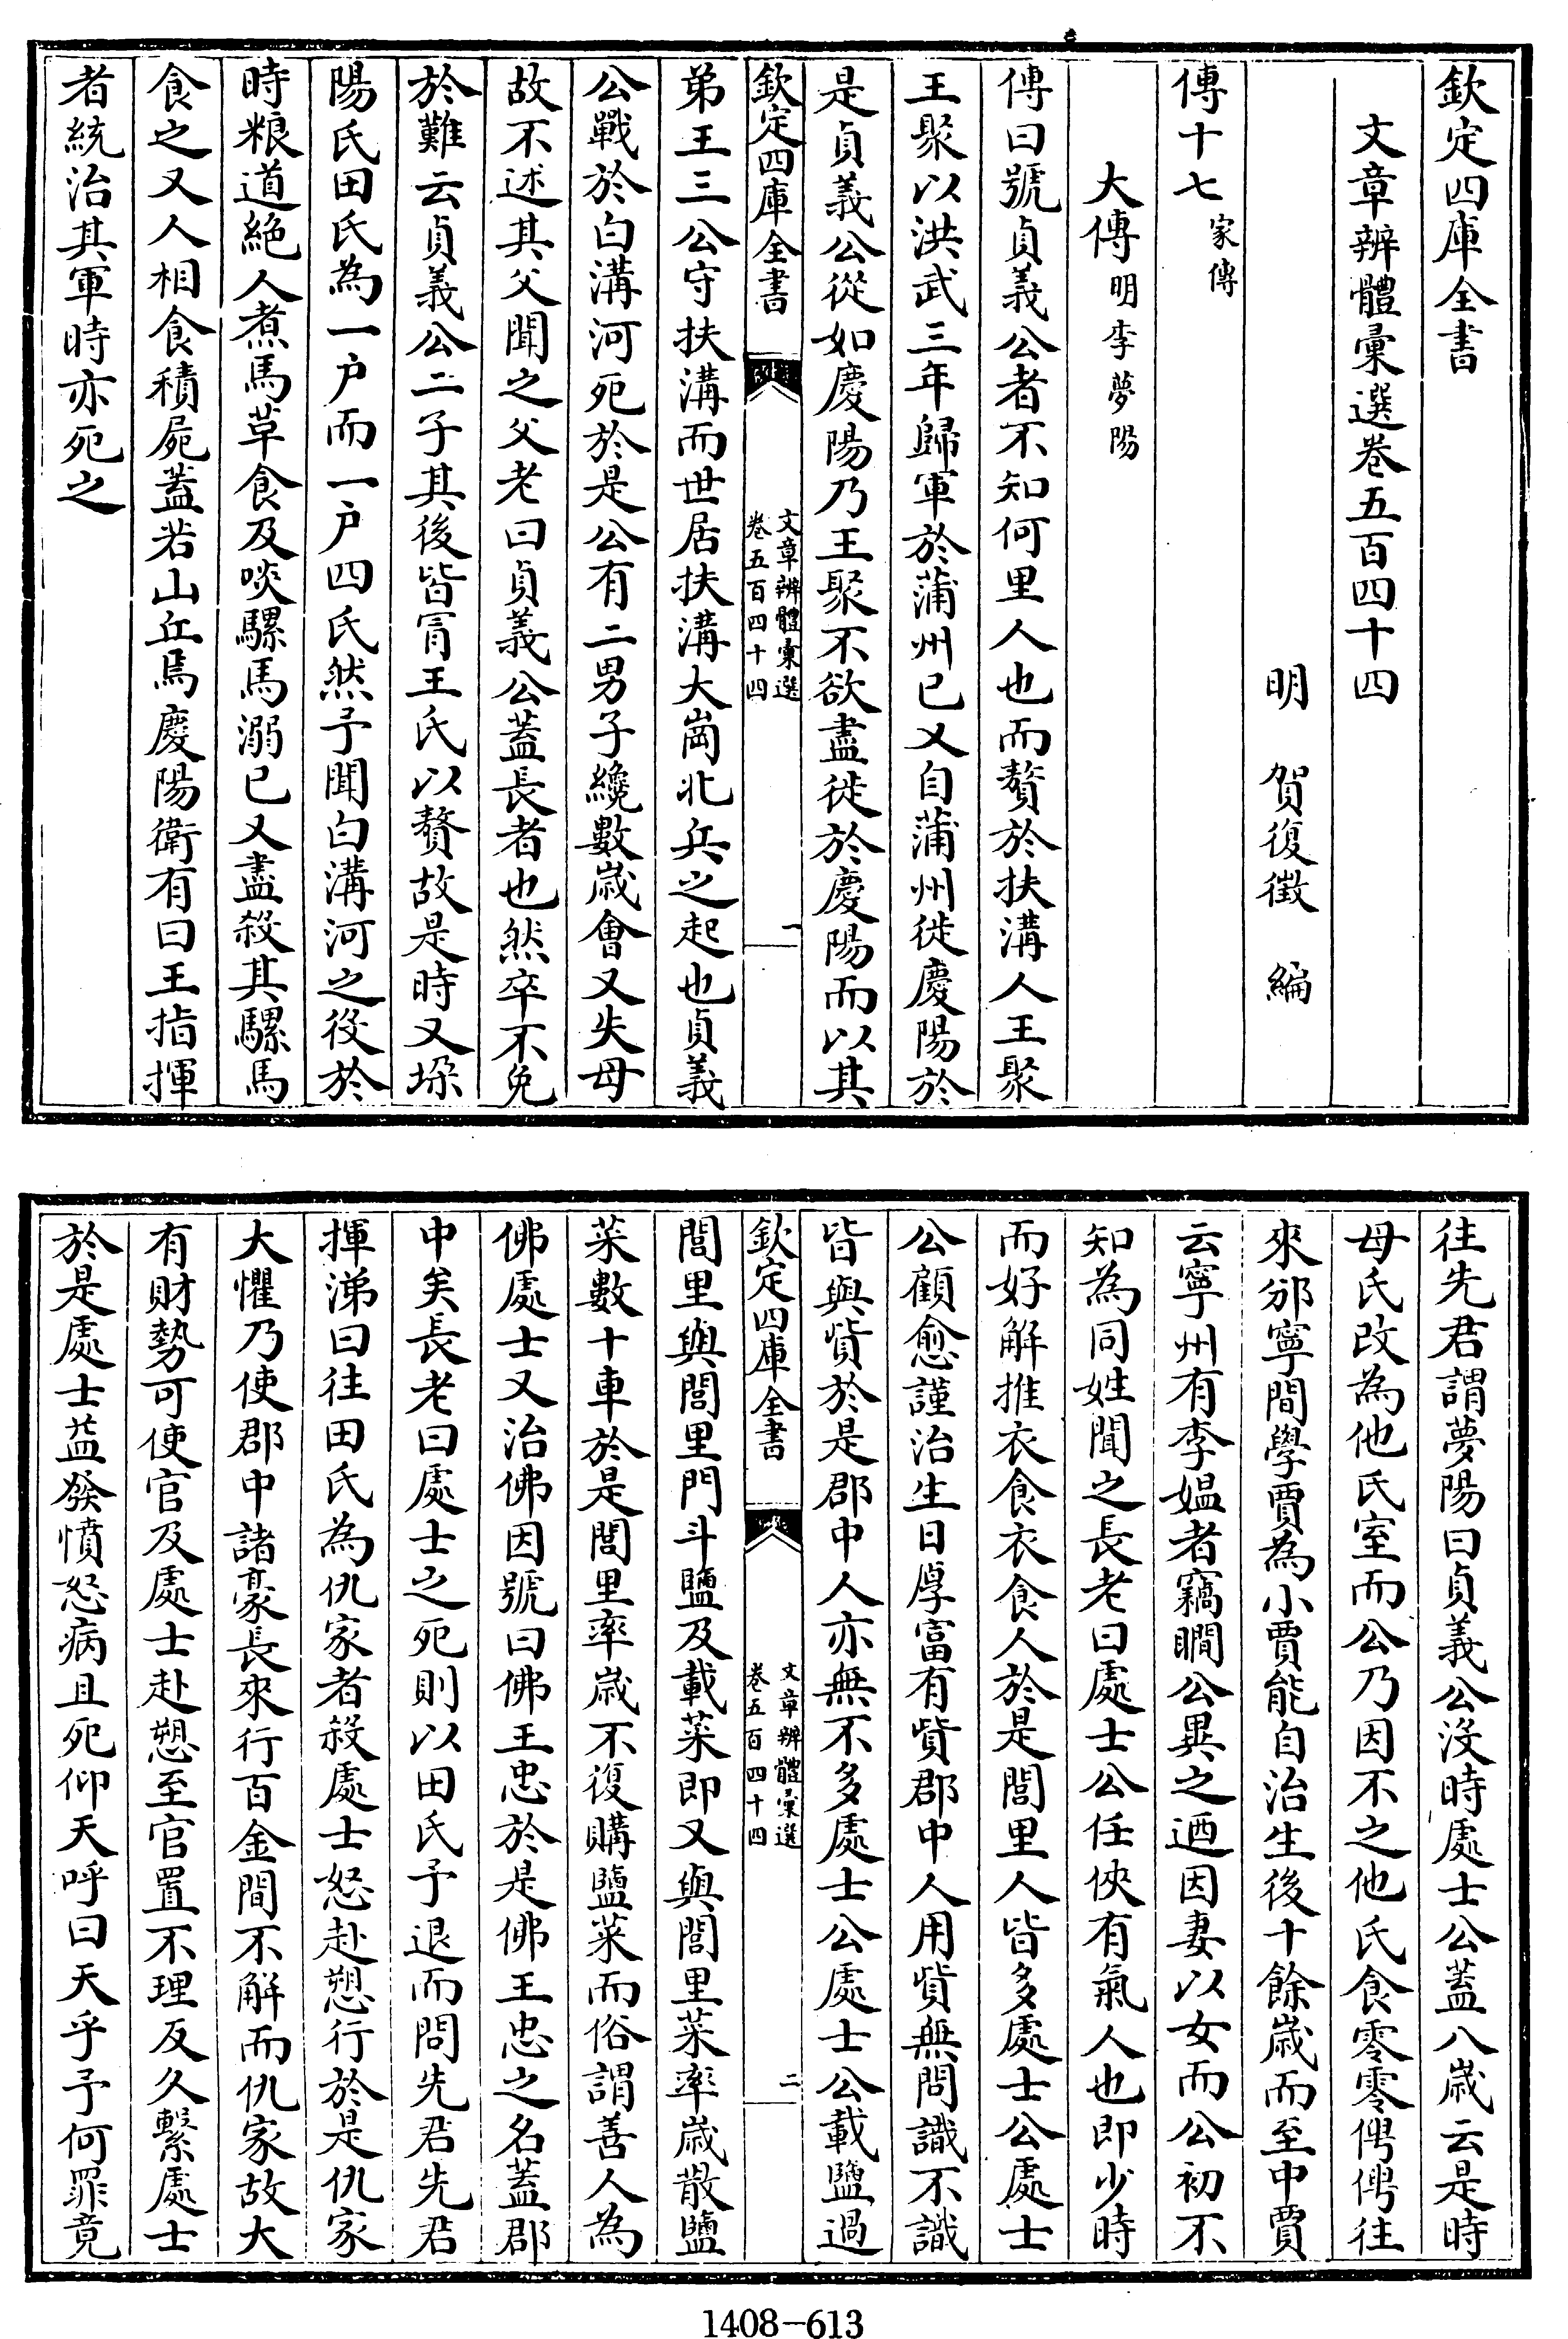 欽定四庫全書
文章辨體彙選卷五百四十四
明 賀復徵 編
傳十七 家傳
大傳 明李夢陽
傳曰號貞義公者不知何里人也而贅於扶溝人王聚
王聚以洪武三年歸軍於蒲州已又自蒲州徙慶陽於
是貞義公從如慶陽乃王聚不欲盡徙於慶陽而以其
欽定四庫全書
文章辨體彙選
卷五百四十四
一
弟王三公守扶溝而世居扶溝大崗北兵之起也貞義
公戰於白溝河死於是公有二男子纔數歲會又失母
故不述其父聞之父老曰貞義公蓋長者也然卒不免
於難云貞義公二子其後皆冐王氏以贅故是時又垜
陽氏田氏為一户而一户四氏然予聞白溝河之役於
時粮道絶人煮馬草食及啖騾馬溺已又盡殺其騾馬
食之又人相食積屍蓋若山丘焉慶陽衛有曰王指揮
者統治其軍時亦死之
往先君謂夢陽曰貞義公沒時處士公蓋八歲云是時
母氏改為他氏室而公乃因不之他氏食零零俜俜往
來邠寧間學賈為小賈能自治生後十餘歲而至中賈
云寧州有李媪者竊瞷公異之迺因妻以女而公初不
知為同姓聞之長老曰處士公任俠有氣人也即少時
而好解推衣食衣食人於是閭里人皆多處士公處士
公顧愈謹治生日厚富有貲郡中人用貲無問識不識
皆與貲於是郡中人亦無不多處士公處士公載鹽過
欽定四庫全書
文章辨體彙選
卷五百四十四
二
閭里與閭里門斗鹽及載菜即又與閭里菜率歲散鹽
菜數十車於是閭里率歲不復購鹽菜而俗謂善人為
佛處士又治佛因號曰佛王忠於是佛王忠之名蓋郡
中矣長老曰處士之死則以田氏予退而問先君先君
揮涕曰往田氏為仇家者殺處士怒赴愬行於是仇家
大懼乃使郡中諸豪長來行百金間不解而仇家故大
有財勢可使官及處士赴愬至官置不理反久繫處士
於是處士益發憤怒病且死仰天呼曰天乎予何罪竟
1408-613